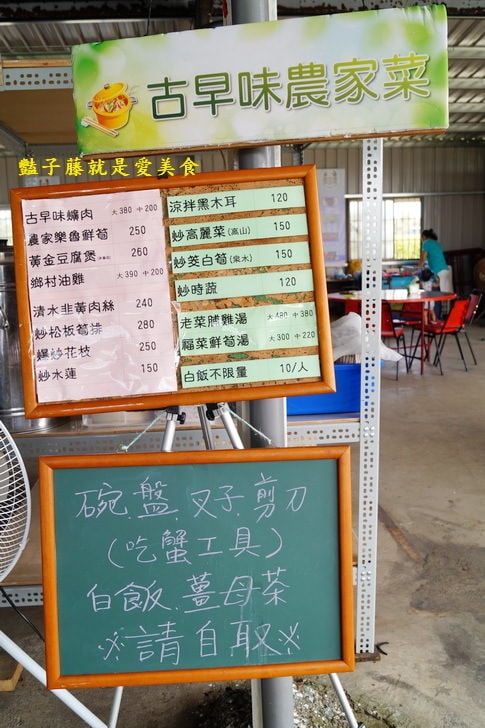 古早味農家菜
豔子藤就是愛美食
古早味爌肉 大380 中200
農家樂魯鮮筍 250
黃金豆腐煲 260
鄉村油雞 大390 中200
清水韭黃肉絲 240
炒松板筍排 280
炒花枝 250
炒水蓮 150
涼拌黑木耳 120
炒高麗菜(高山) 150
炒茭白筍(泉水) 150
炒時蔬 120
老菜脯雞湯 大480 中380
福菜鮮筍湯 大300 中220
白飯不限量 10/人
碗.盤 叉子.剪刀
(吃蟹工具)
白飯.薑母茶
※請自取※